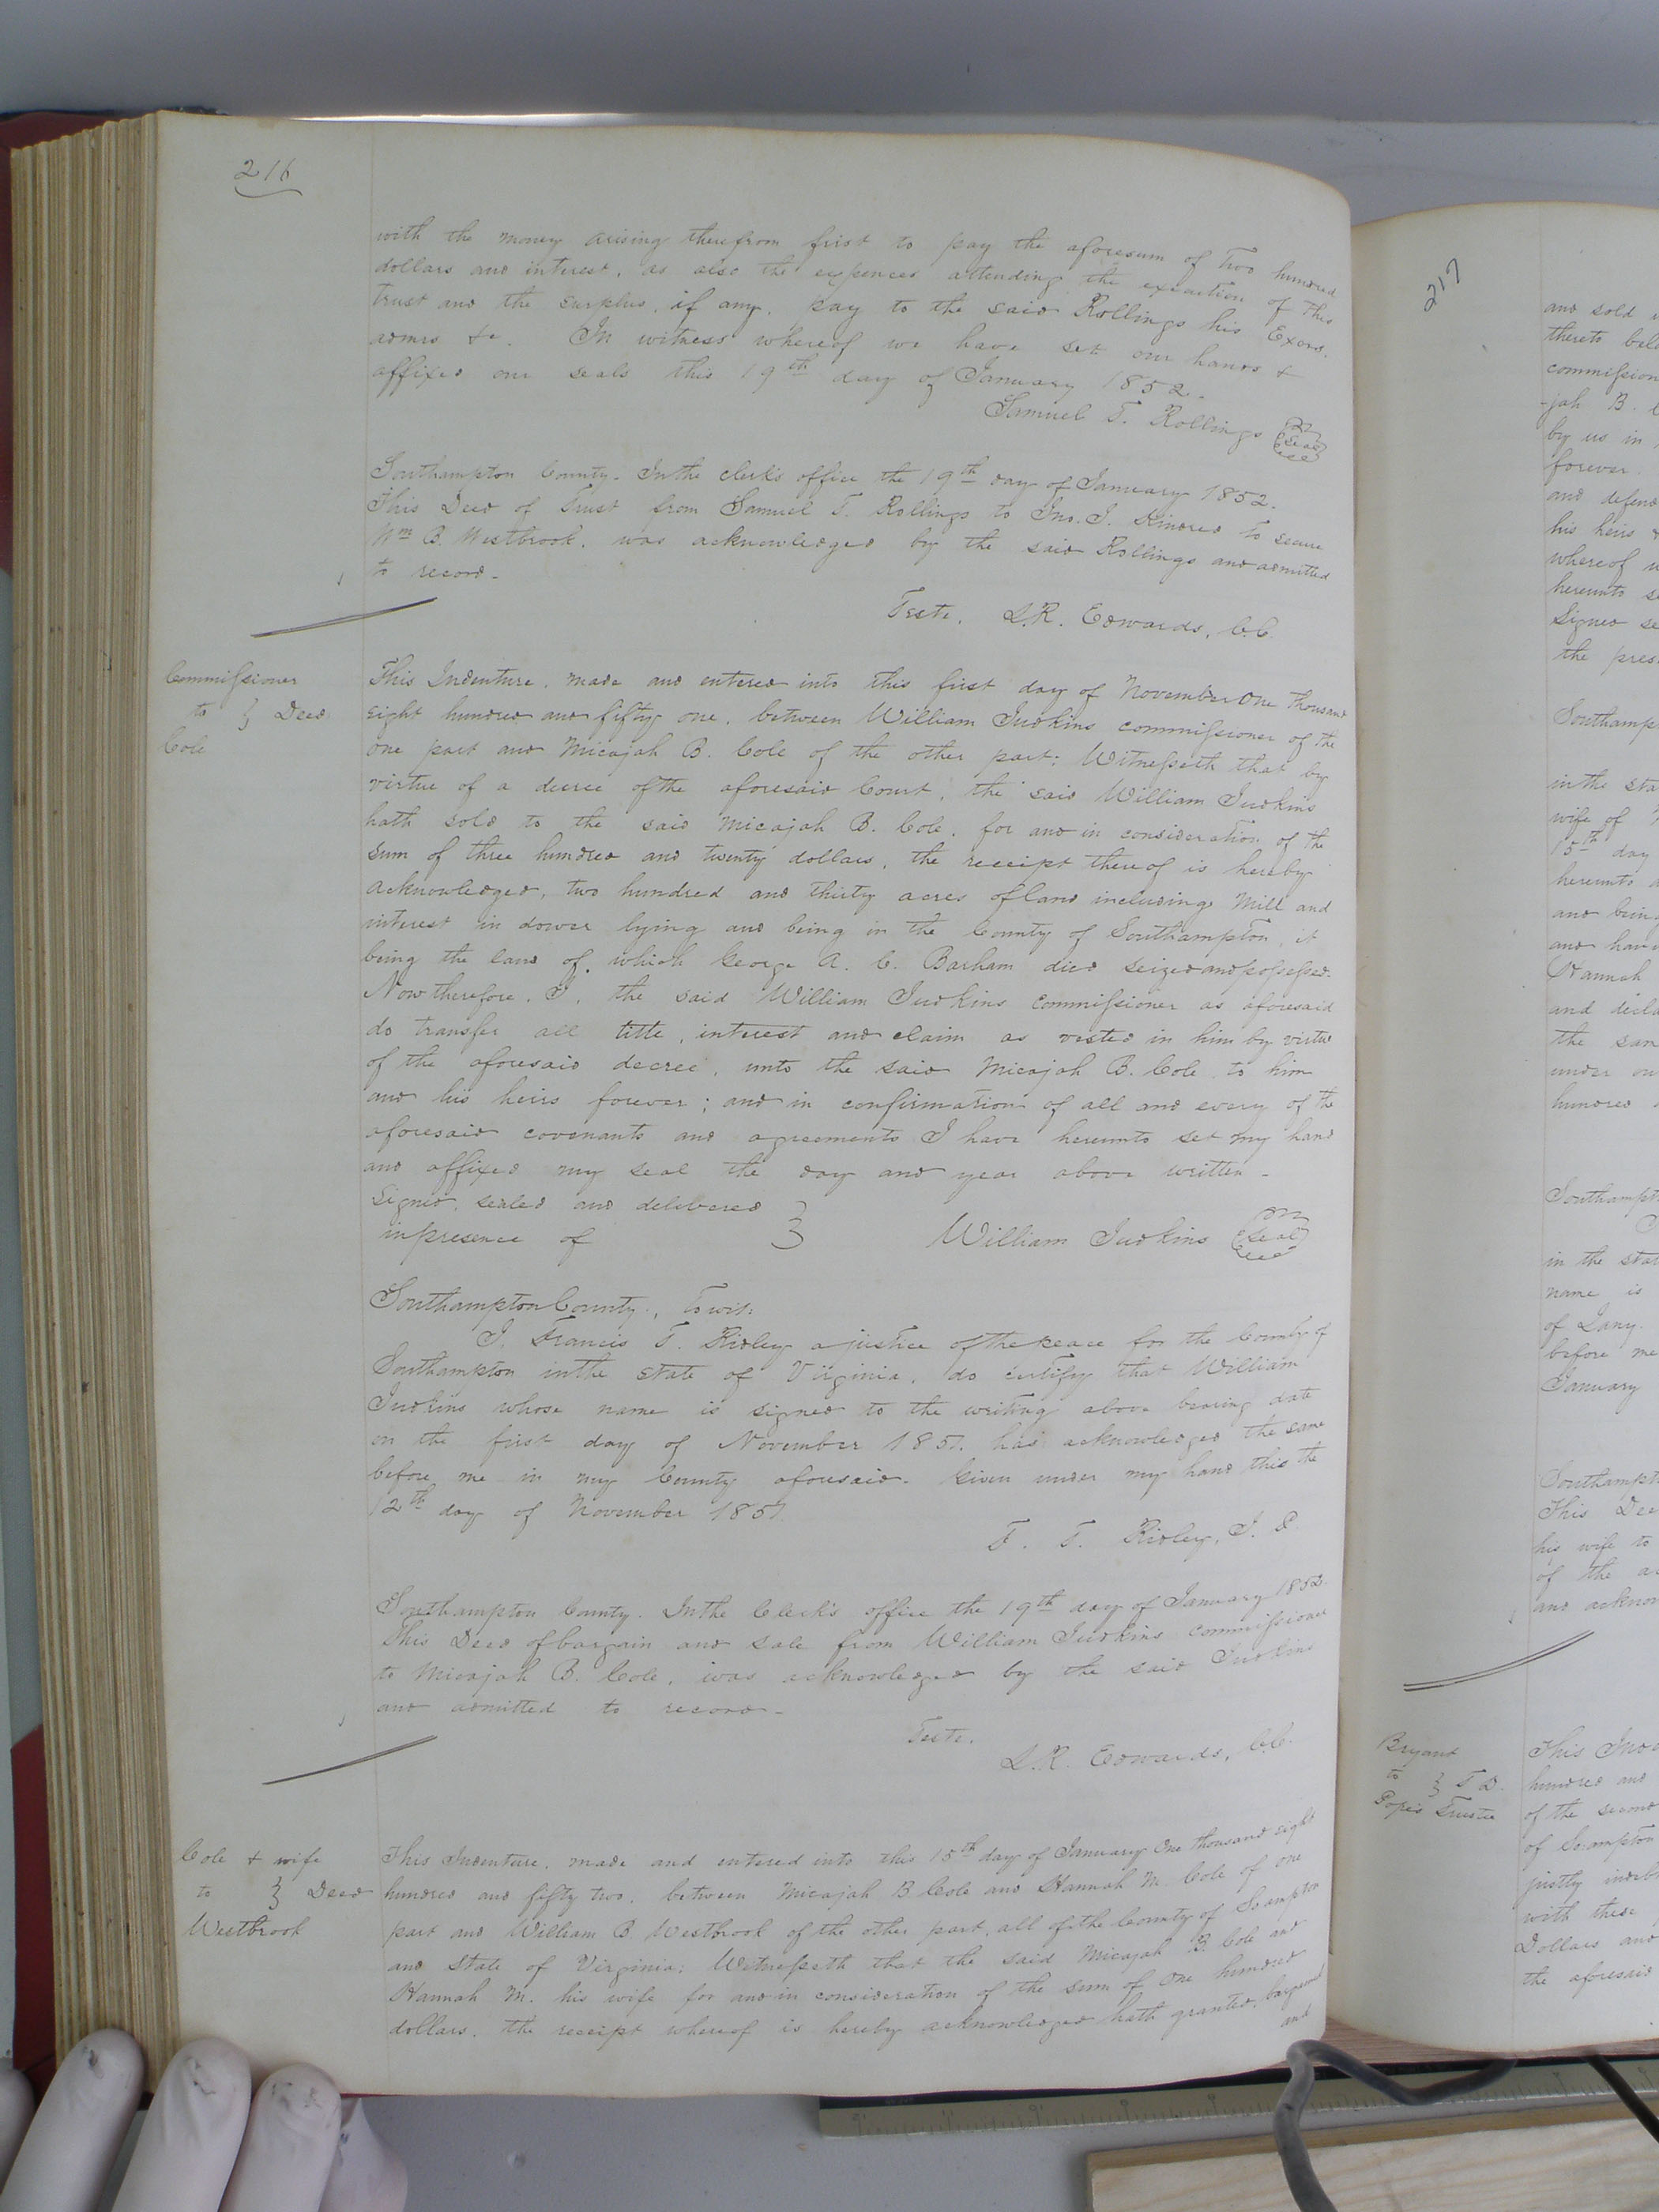 216
with the money arising therefrom first to pay the aforesum of Two hundred
dollars and interest, as also the expences attending the execution of this
trust and the surplus, if any, pay to the said Rollings his Exors.
admrs &c. In witness whereof we have set our hands &
affixed our seals this 19th day of January 1852.
Samuel T. Rollings Seal
Southampton County. In the clerk's office the 19th day of January 1852.
This Deed of Trust from Samuel T. Rollings to Jno. J. Kindred to secure
Wm B. Westbrook, was acknowledged by the said Rollings and admitted
to record.
Teste, L.R. Edwards, C.C.
Commissioner
to } Deed
Cole
This Indenture, made and entered into this first day of November One thousand
eight hundred and fifty one, between William Judkins commissioner of the
one part and Micajah B. Cole of the other part: Witnesseth that by
virtue of a decree of the aforesaid Court, the said William Judkins
hath sold to the said Micajah B. Cole, for and in consideration of the
sum of three hundred and twenty dollars, the receipt thereof is hereby
acknowledged, two hundred and thirty acres of land including Mill and
interest in dower lying and being in the County of Southampton, it
being the land of which George A. C. Barham died seized and possessed.
Now therefore, I, the said William Judkins commissioner as aforesaid
do transfer all title, interest and claim as vested in him by virtue
of the aforesaid decree, unto the said Micajah B. Cole to him
and his heirs forever; and in confirmation of all and every of the
aforesaid covenants and agreements I have hereunto set my hand
and affixed my seal the day and year above written -
Signed, sealed and delivered }
in presence of
William Judkins Seal
Southampton County, to wit:
I, Francis T. Ridley a justice of the peace for the County of
Southampton in the State of Virginia, do certify that William
Judkins whose name is signed to the writing above bearing date
on the first day of November 1851. has acknowledged the same
before me in my County aforesaid. Given under my hand this the
12th day of November 1851.
F. T. Ridley, J. P
Southampton County. In the Clerk's office the 19th day of January 1852.
This Deed of bargain and sale from William Judkins commissioner
to Micajah B. Cole, was acknowledged by the said Judkins
and admitted to record -
Teste,
L.R. Edwards, C.C.
Cole & wife
to } Deed
Westbrook
This Indenture, made and entered into this 15th day of January One thousand eight
hundred and fifty two, between Micajah B Cole and Hannah M. Cole of one
part and William B Westbrook of the other part, all of the County of So.ampton
and State of Virginia: Witnesseth that the said Micajah B. Cole and
Hannah M. his wife for and in consideration of the sum of One hundred
dollars, the receipt whereof is hereby acknowledged hath granted, bargained
and
217
and sold
thereto
commission
-jah B.
by us in
forever.
and defend
his heirs
whereof
hereunto
Signed
the
in the
wife of
15th day
hereunto
and being
and
Hannah
and
the
under
hundred
in the
name is
of Jany.
before me
January
This
his wife to
of the
and
Bryant
to } T D.
Pope's Trustee
This
hundred and
of the second
of So.ampton
justly
with these
Dollars and
the aforesaid